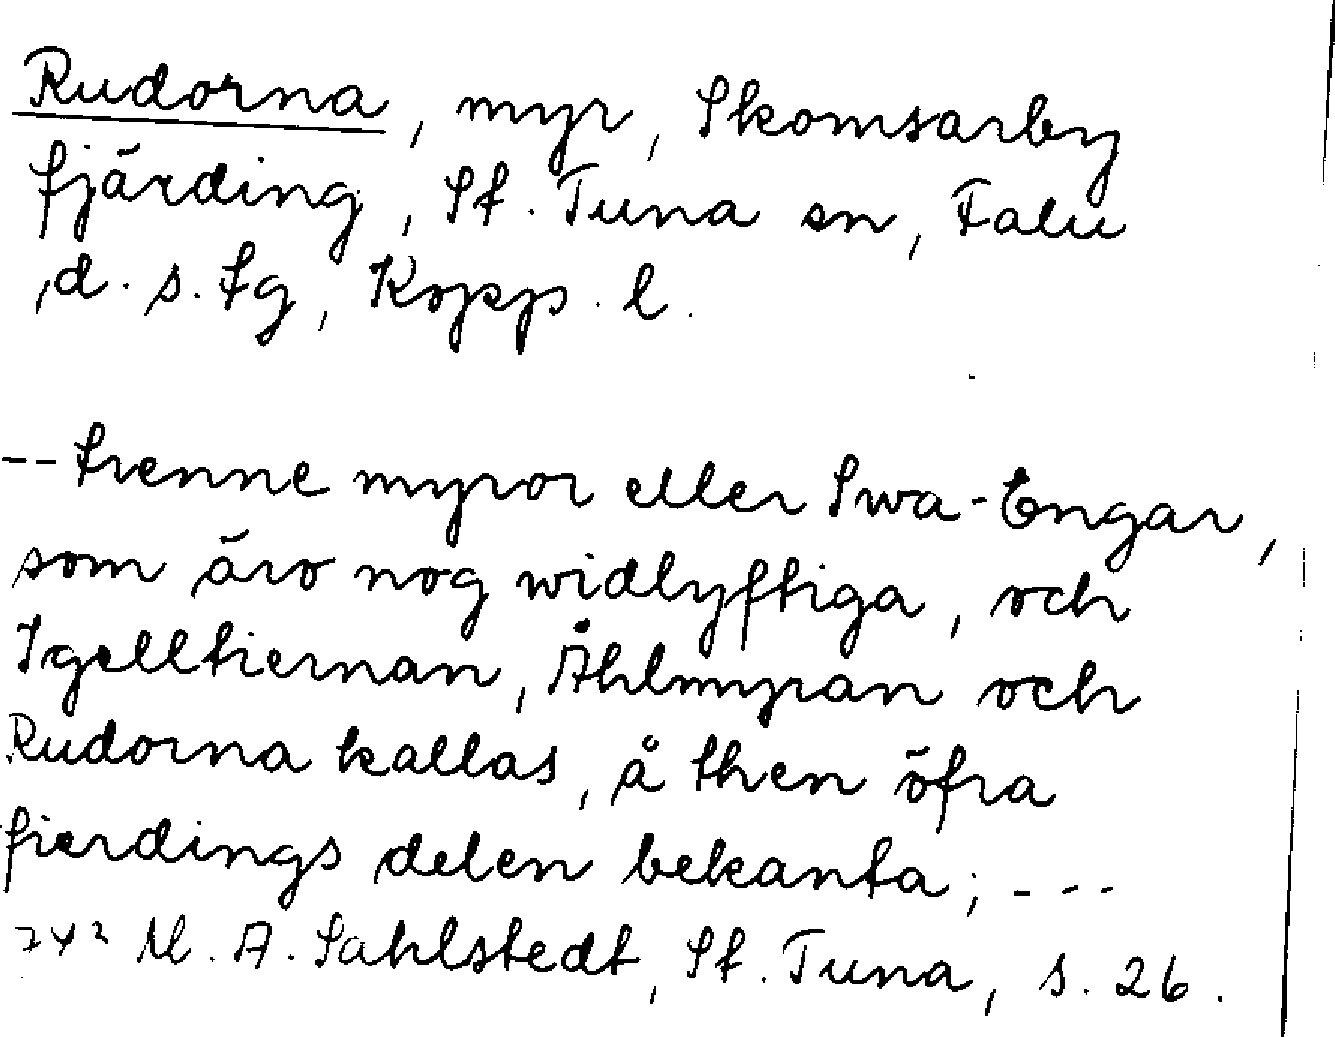 Rudorna, myr, Skomsarby
fjärding, St. Tuna sn, Falu
d. s. tg, Kopp. l.
-- trenne myror eller Swa-Engar,
som äro nog widlyftiga, och
Igelltiernan, Åhlmyran och
Rudorna kallas, å then öfra
fierdings delen bekanta; ---
742 M. A. Sahlstedt, St. Tuna, s. 26.